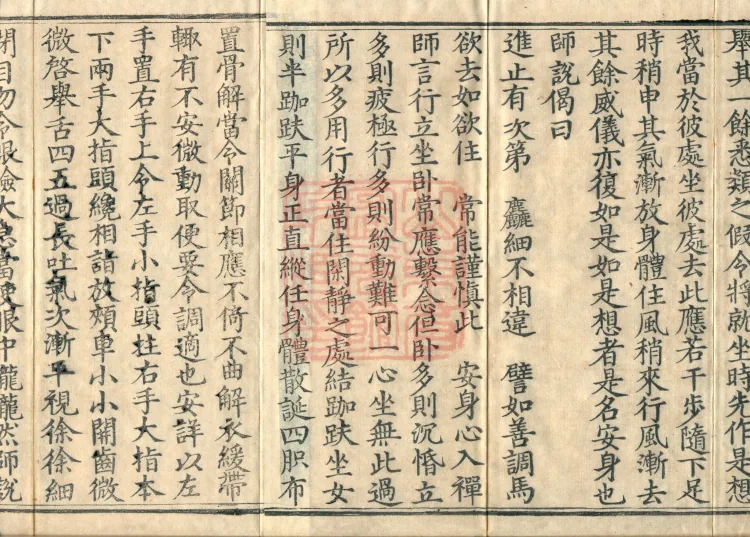 舉其一餘悉類之假令將就坐時先作是想
我當於彼處坐彼處去此應若干步隨下足
時稍申其氣漸放身體住風稍來行風漸去
其餘威儀亦復如是如是想者是名安身也
師說偈曰
進止有次第　麤細不相違　譬如善調馬
欲去如欲住　常能謹慎此　安身心入禪
師言行立坐卧常應繫念但卧多則沉惛立
多則疲極行多則紛動難可一心坐無此過
所以多用行者當住閑靜之處結跏趺坐女
則半跏趺平身正直縱任身體散誕四胑布
置骨解當令關節相應不倚不曲解衣緩帶
輙有不安微動取便要令調適也安詳以左
手置右手上令左手小指頭拄右手大指本
下兩手大指頭纔相詣放頰車小小開齒微
微啓舉舌四五過長吐氣次漸平視徐徐細
閉目勿令眼瞼大急當使眼中朧朧然師說